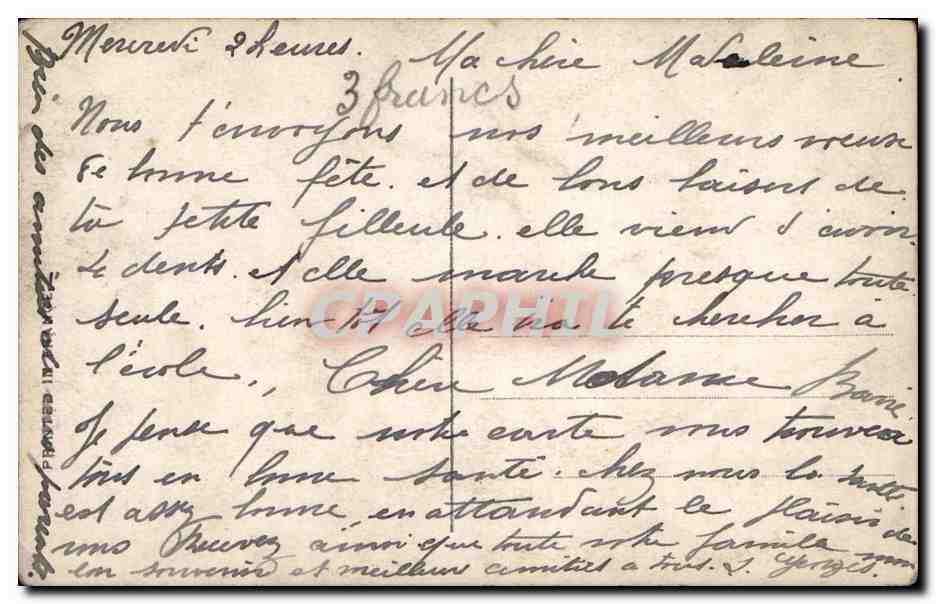 Mercredi 2 heures. Ma chère Madeleine.
3 francs
Nous t'envoyons nos meilleurs voeux
de bonne fête. et de bons baisers de
ta petite filleule. elle vient d'avoir
4 dents. et elle marche presque toute
seule. bientôt elle ira te chercher à
l'école., Chère Madame Barré
Je pense que notre carte vous trouvera
tous en bonne santé. chez nous la santé
est assez bonne, en attendant le plaisir de
vous Recevez ainsi que toute votre famille mon
bon souvenir et meilleur amitiés a tous. Georges.
Bien des amitiés parents.
CPAPHIL